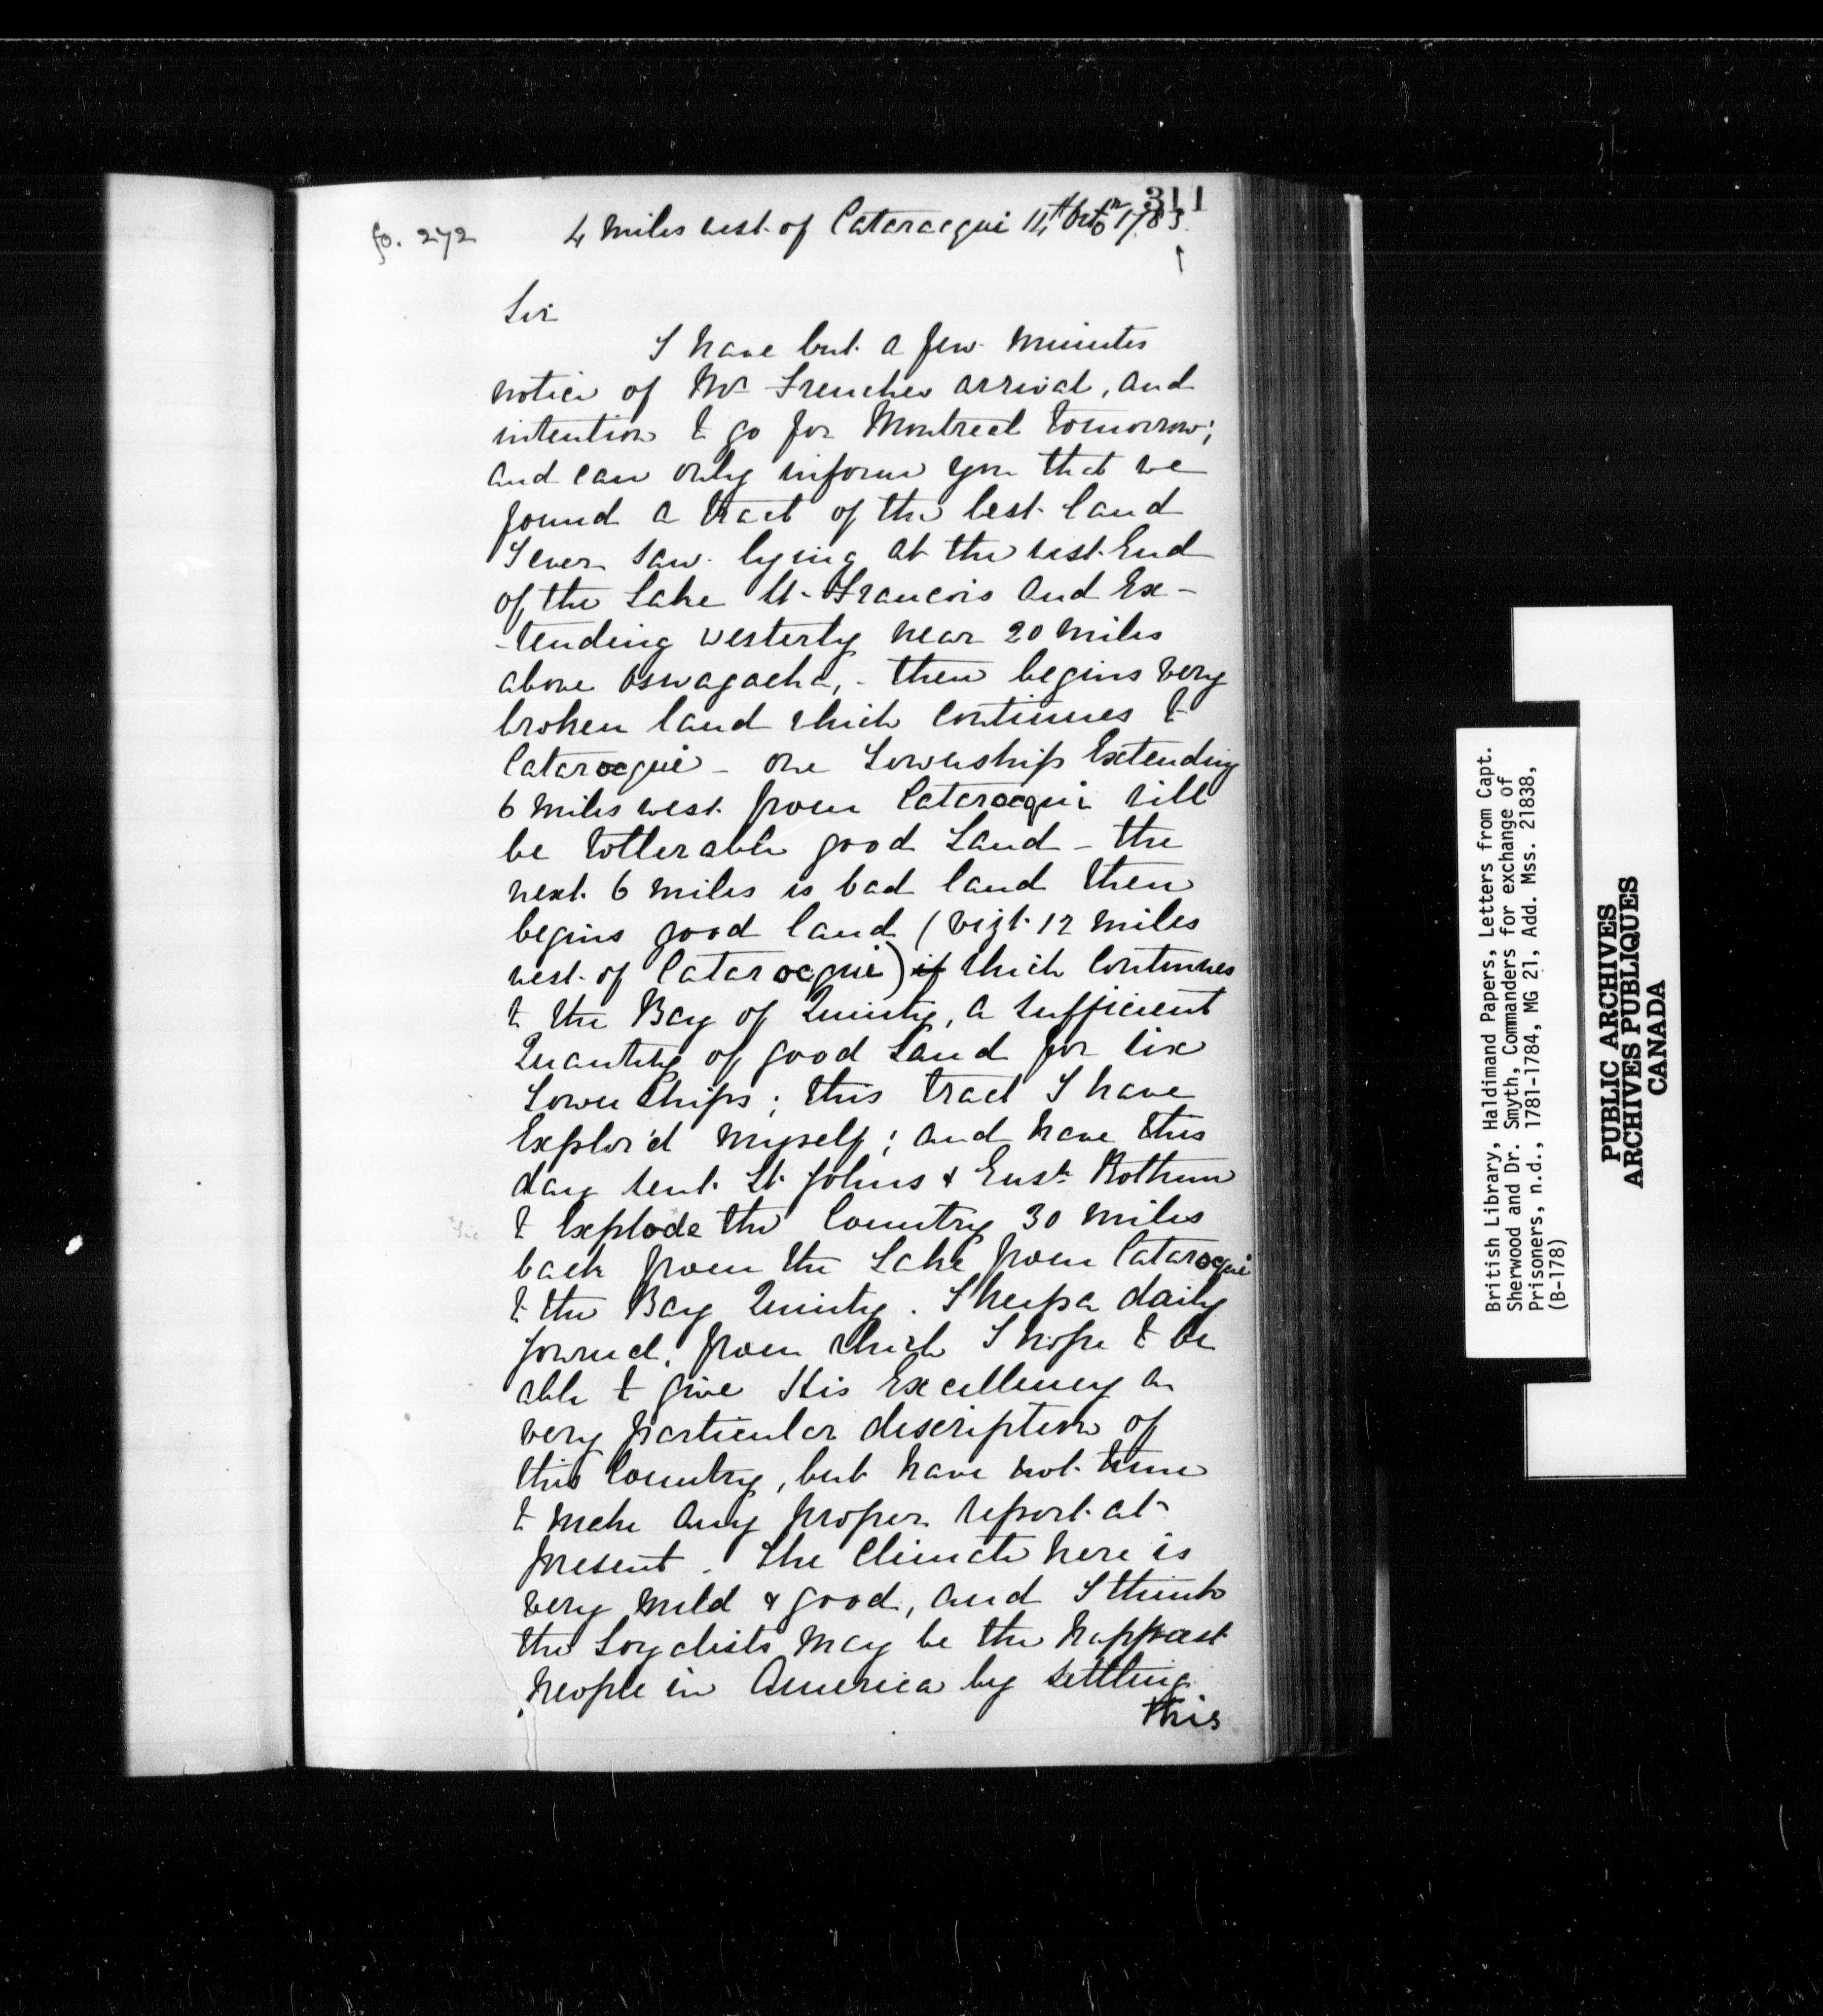 311
fo. 272
4 Miles west of Cataracqui 14th Octbr 1783
Sir
I have but a few minutes
notice of Mr Frenches arrival, and
intention to go for Montreal tomorrow;
and can only inform you that we
found a tract of the best land
I ever saw lying at the west End
of the Lake St. Francois and Ex-
-tending westerly near 20 miles
above Oswagacha, - then begins very
broken land which continues to
Cataracqui - one Township Extending
6 miles west from Cataracqui will
be tollerable good Land - the
next 6 miles is bad land then
begins good land (vizt. 12 miles
west of Cataracqui) if which Continues
to the Bay of Quinty, a sufficient
Quantity of good Land for six
Townships; this tract I have
Explor'd myself; and have this
day sent Lt. Johns & Ensn. Bothum
to Explode the Country 30 miles
back from the Lake from Cataroqui
to the Bay Quinty. I keep a daily
Journal, from which I hope to be
able to give His Excellency a
very particular discription of
this Country, but have not time
to make any proper report at
present. The Climate here is
very mild & good, and I think
the Loyalists may be the happiest
People in America by settling
this
British Library, Haldimand Papers, Letters from Capt.
Sherwood and Dr. Smyth, Commanders for exchange of
Prisoners, n.d., 1781-1784, MG 21, Add. Mss. 21838,
(B-178)
PUBLIC ARCHIVES
ARCHIVES PUBLIQUES
CANADA